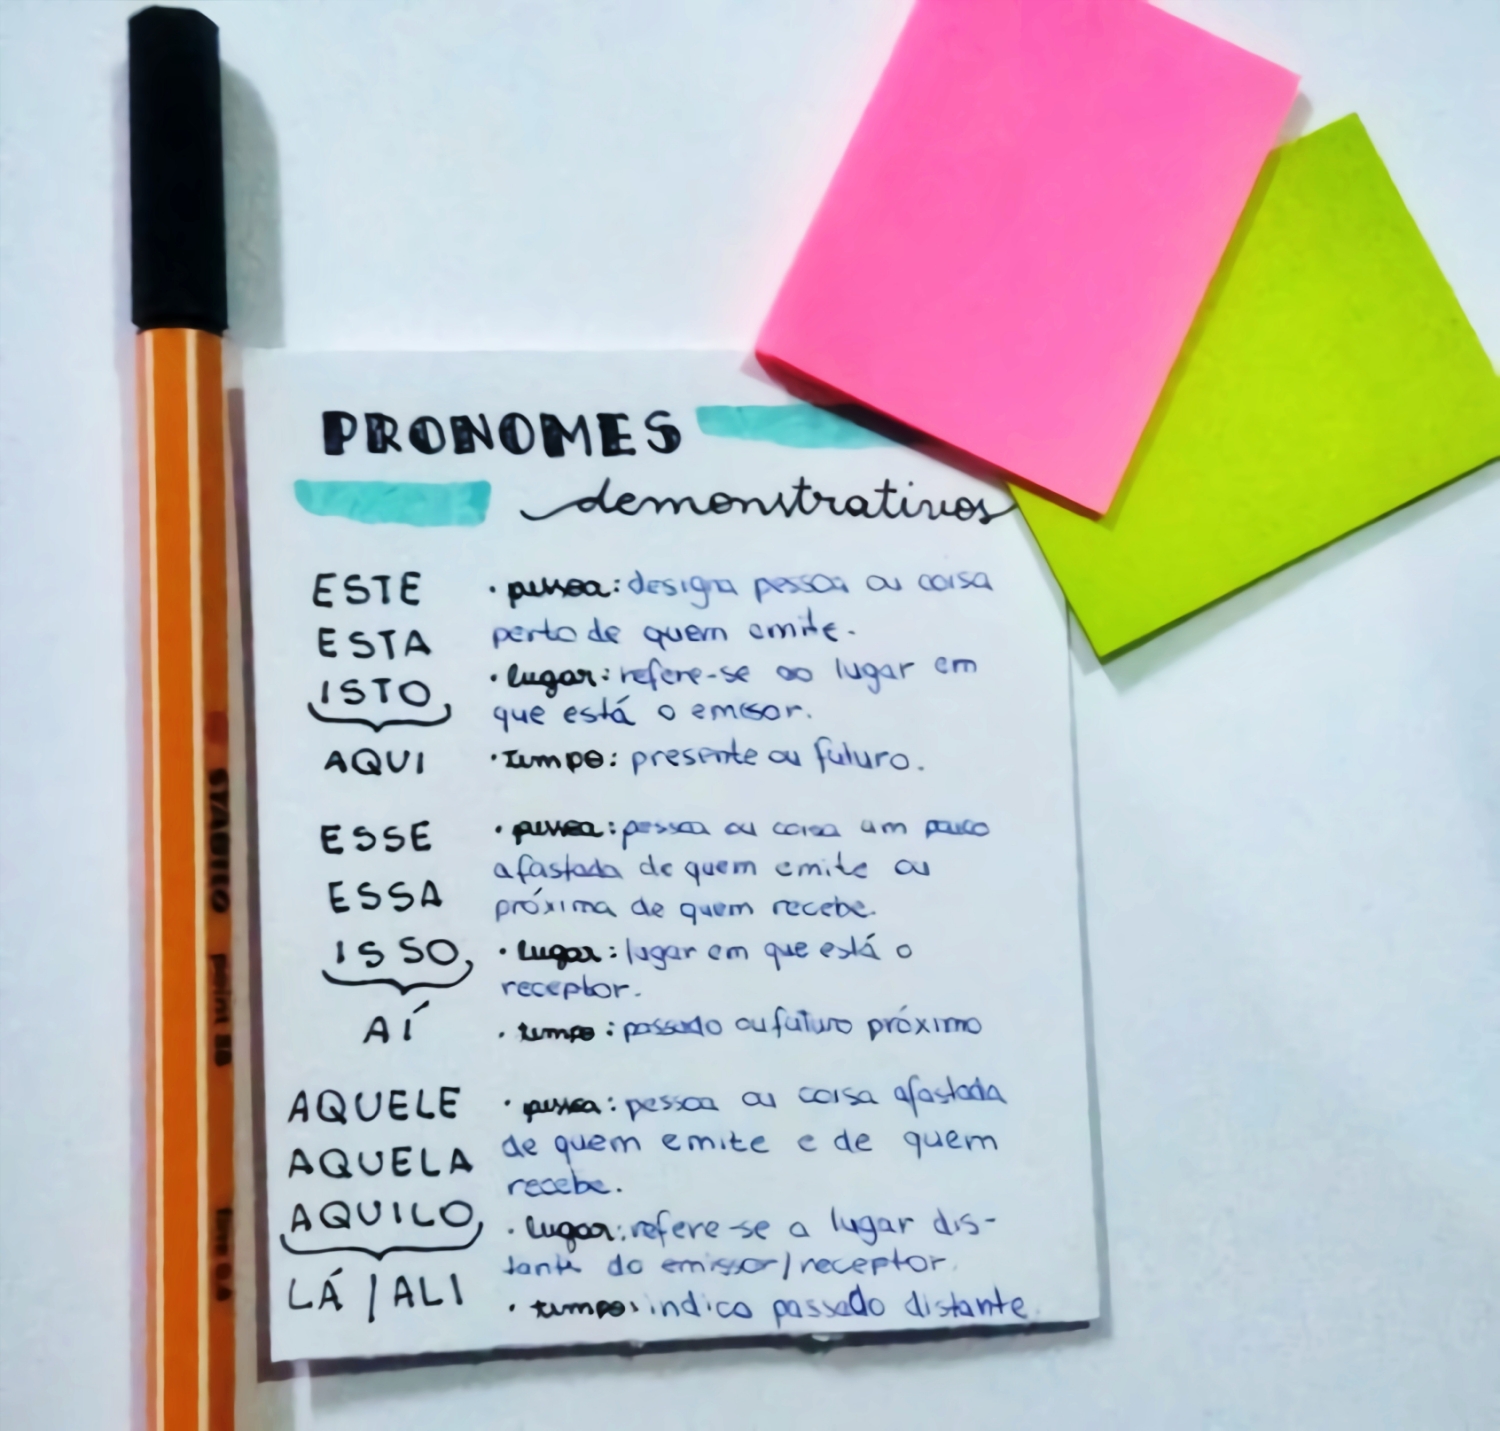 PRONOMES
demonstrativos
ESTE
ESTA
ISTO
AQUI
• pessoa: designa pessoa ou coisa
perto de quem emite.
• lugar: refere-se ao lugar em
que está o emissor.
• tempo: presente ou futuro.
ESSE
ESSA
ISSO
AÍ
• pessoa: pessoa ou coisa um pouco
afastada de quem emite ou
próxima de quem recebe.
• lugar: lugar em que está o
receptor.
• tempo: passado ou futuro próximo
AQUELE
AQUELA
AQUILO
LÁ / ALI
• pessoa: pessoa ou coisa afastada
de quem emite e de quem
recebe.
• lugar: refere-se a lugar dis-
tante do emissor/receptor.
• tempo: indica passado distante.
STABILO point 88 fine 0.4